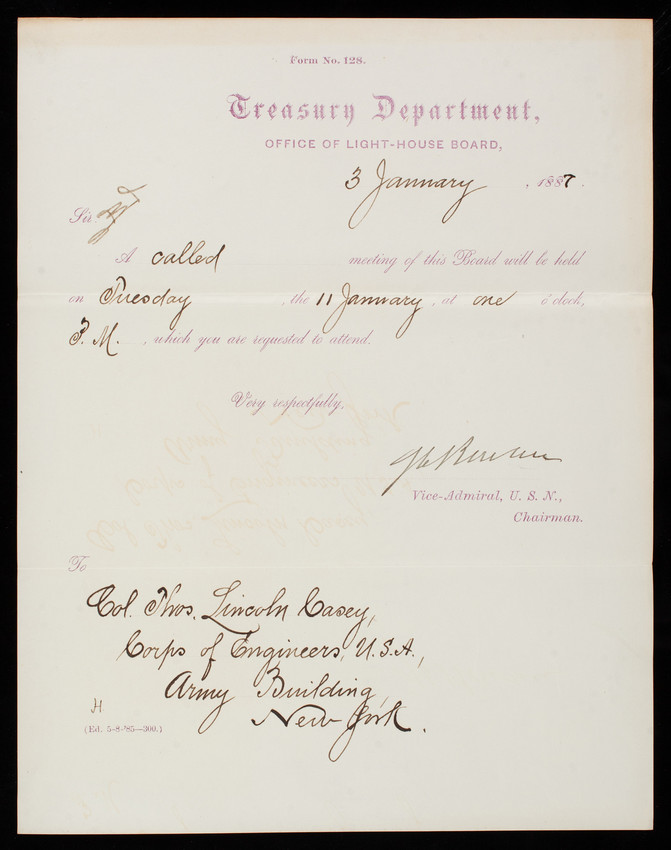 Form No. 128.
Treasury Department,
OFFICE OF LIGHT-HOUSE BOARD,
3 January, 1887.
Sir:
A called meeting of this Board will be held
on Tuesday, the 11 January, at one o'clock,
P. M., which you are requested to attend.
Very respectfully,
Vice-Admiral, U. S. N.,
Chairman.
To
Col. Thos. Lincoln Casey,
Corps of Engineers, U.S.A.,
Army Building,
New York.
H
(Ed. 5-8-'85—300.)